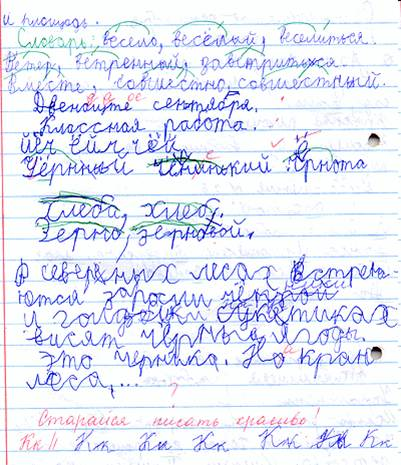 и площадь.
Словарь: весело, весёлый, веселиться.
Ветер, ветренный,
Вместе, совместно, совместный.
Двенадците сентября.
Классная работа.
йеч ейм чей
Чёрный чернота
Хлеба, хлеб,
Зерно, зерновой.
В северных лесах встреча-
ются заросли
и голубики
висят чёрные ягоды.
Это черника. На краю
леса,...
?
Старайся писать красиво!
Кк || Кк Кк Кк Кк Кк Кк